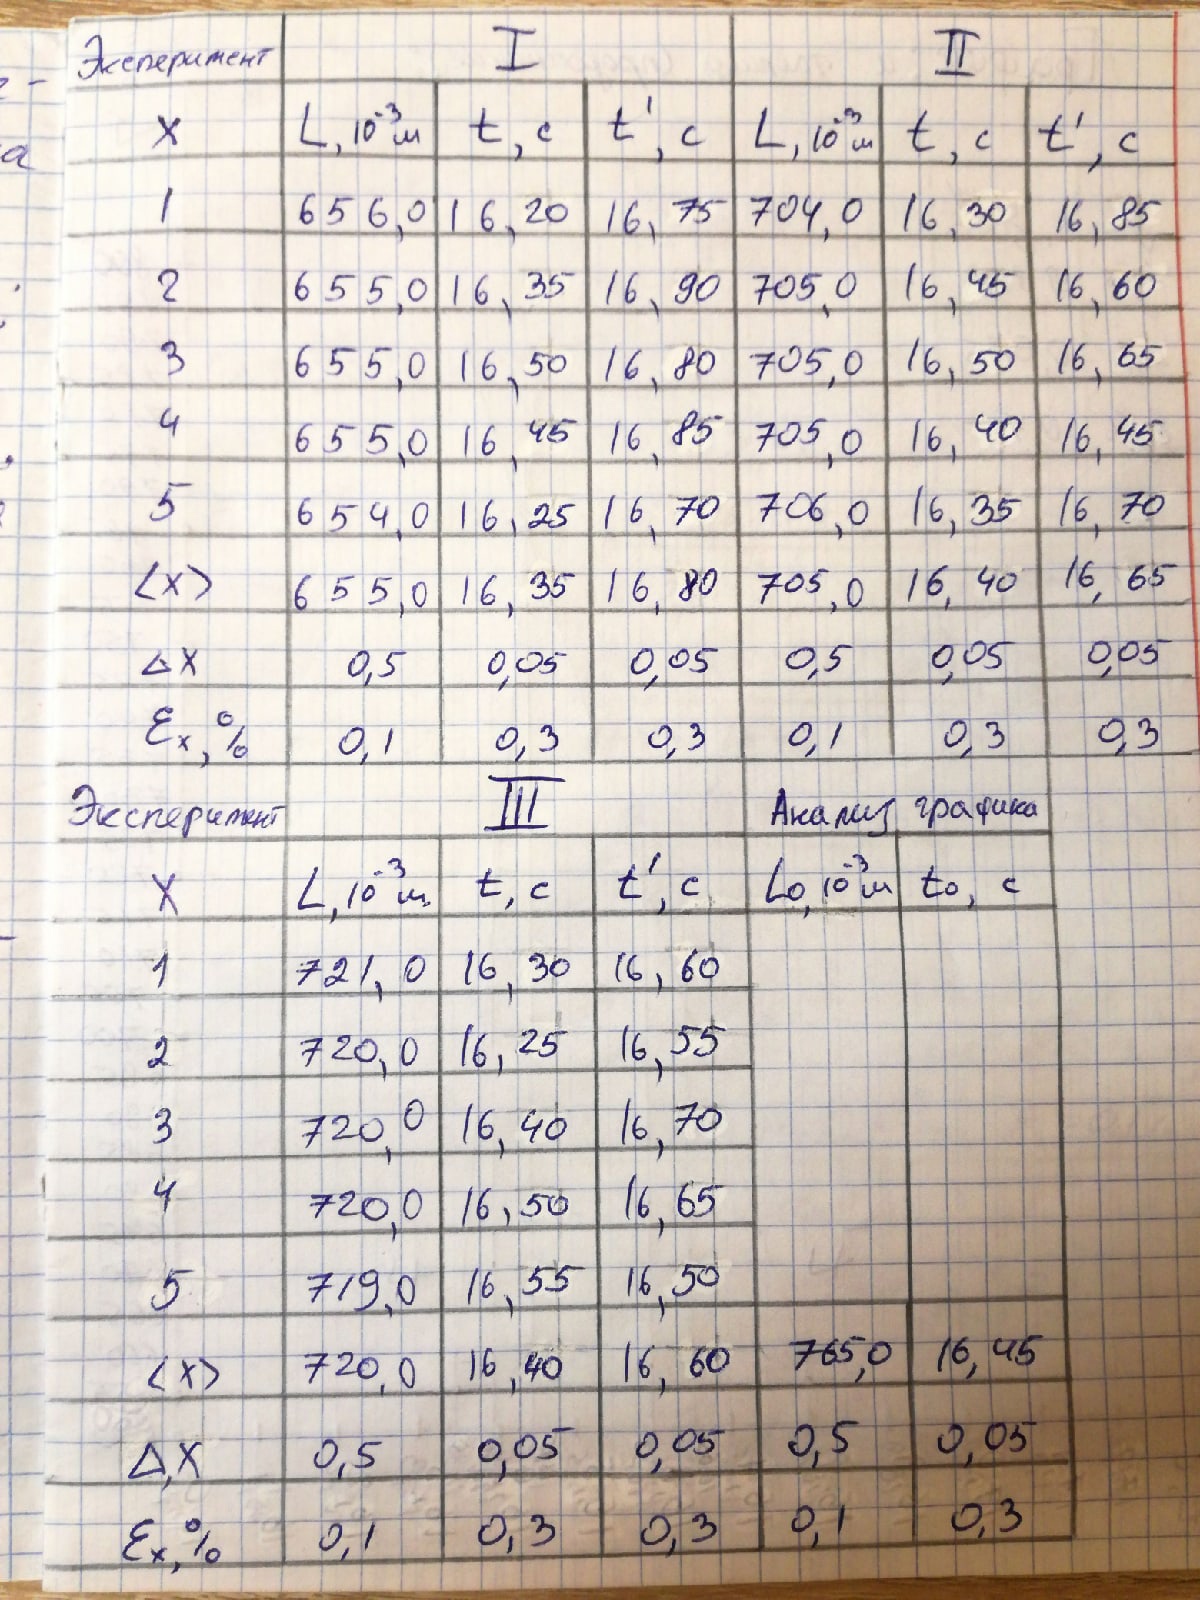 Эксперимент I II
X L, 10⁻³м t, с t', с L, 10⁻³м t, с t', с
1 656,0 16,20 16,75 704,0 16,30 16,85
2 655,0 16,35 16,90 705,0 16,45 16,60
3 655,0 16,50 16,80 705,0 16,50 16,65
4 655,0 16,45 16,85 705,0 16,40 16,45
5 654,0 16,25 16,70 706,0 16,35 16,70
⟨X⟩ 655,0 16,35 16,80 705,0 16,40 16,65
ΔX 0,5 0,05 0,05 0,5 0,05 0,05
Ɛx, % 0,1 0,3 0,3 0,1 0,3 0,3
Эксперимент III Анализ графика
X L, 10⁻³м. t, с t', с L₀, 10⁻³м t₀, с
1 721,0 16,30 16,60
2 720,0 16,25 16,55
3 720,0 16,40 16,70
4 720,0 16,50 16,65
5 719,0 16,55 16,50
⟨X⟩ 720,0 16,40 16,60 765,0 16,45
ΔX 0,5 0,05 0,05 0,5 0,05
Ɛx, % 0,1 0,3 0,3 0,1 0,3